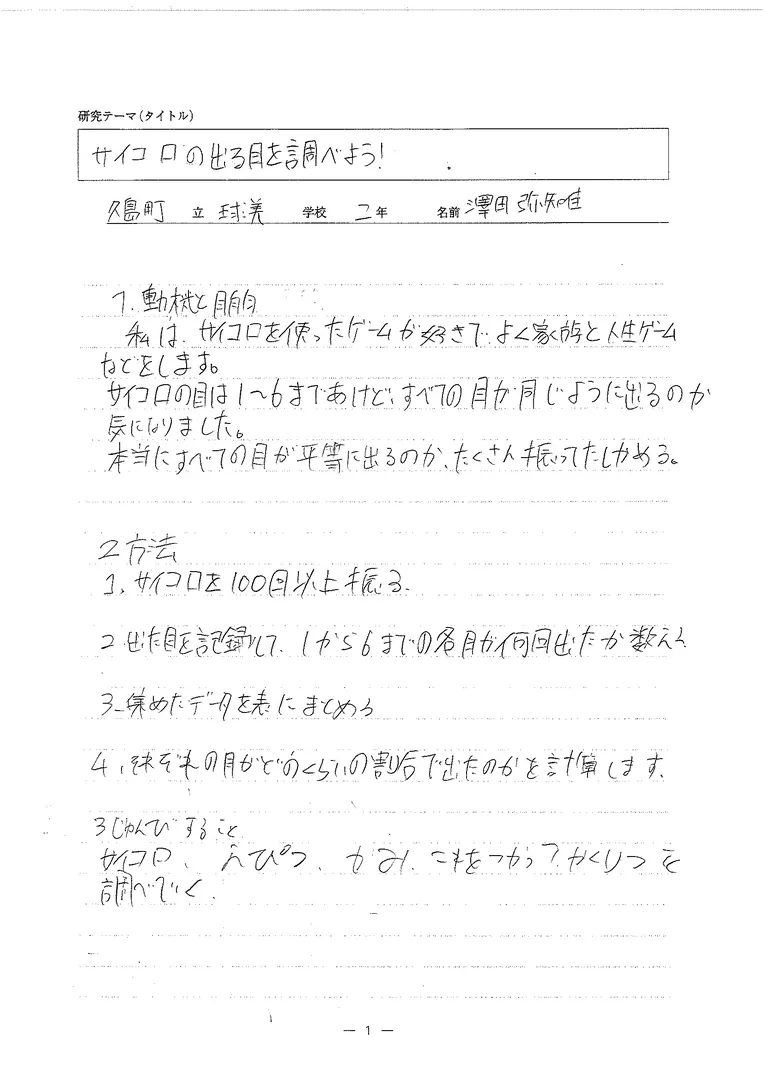 研究テーマ(タイトル)
サイコロの出る目を調べよう!
久島町 立 球美 学校 二年 名前 澤田 弥知唯
1. 動機と目的
私は、サイコロを使ったゲームが好きで よく家族と人生ゲーム
などをします。
サイコロの目は1〜6まであけど、すべての目が同じように出るのか
気になりました。
本当にすべての目が平等に出るのか、たくさん振ってたしかめる。
2 方法
1、サイコロを100回以上振る.
2 出た目を記録して、1から6までの各目が何回出たか数える
3、集めたデータを表にまとめる
4、それぞれの目がどのくらいの割合で出たのかを計算します.
3じゅんびすること
サイコロ、えんぴつ、かみ、これをつかってかくりつを
調べていく.
— 1 —